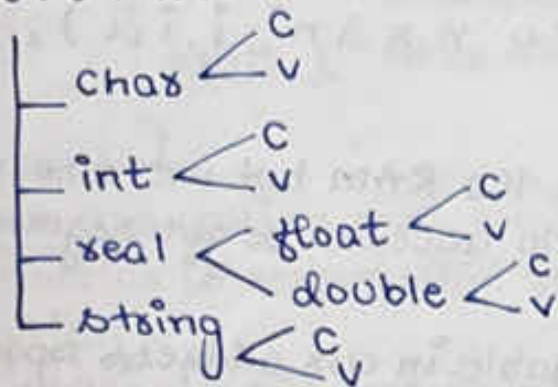 char c
v
int c
v
real float c
v
double c
v
string c
v